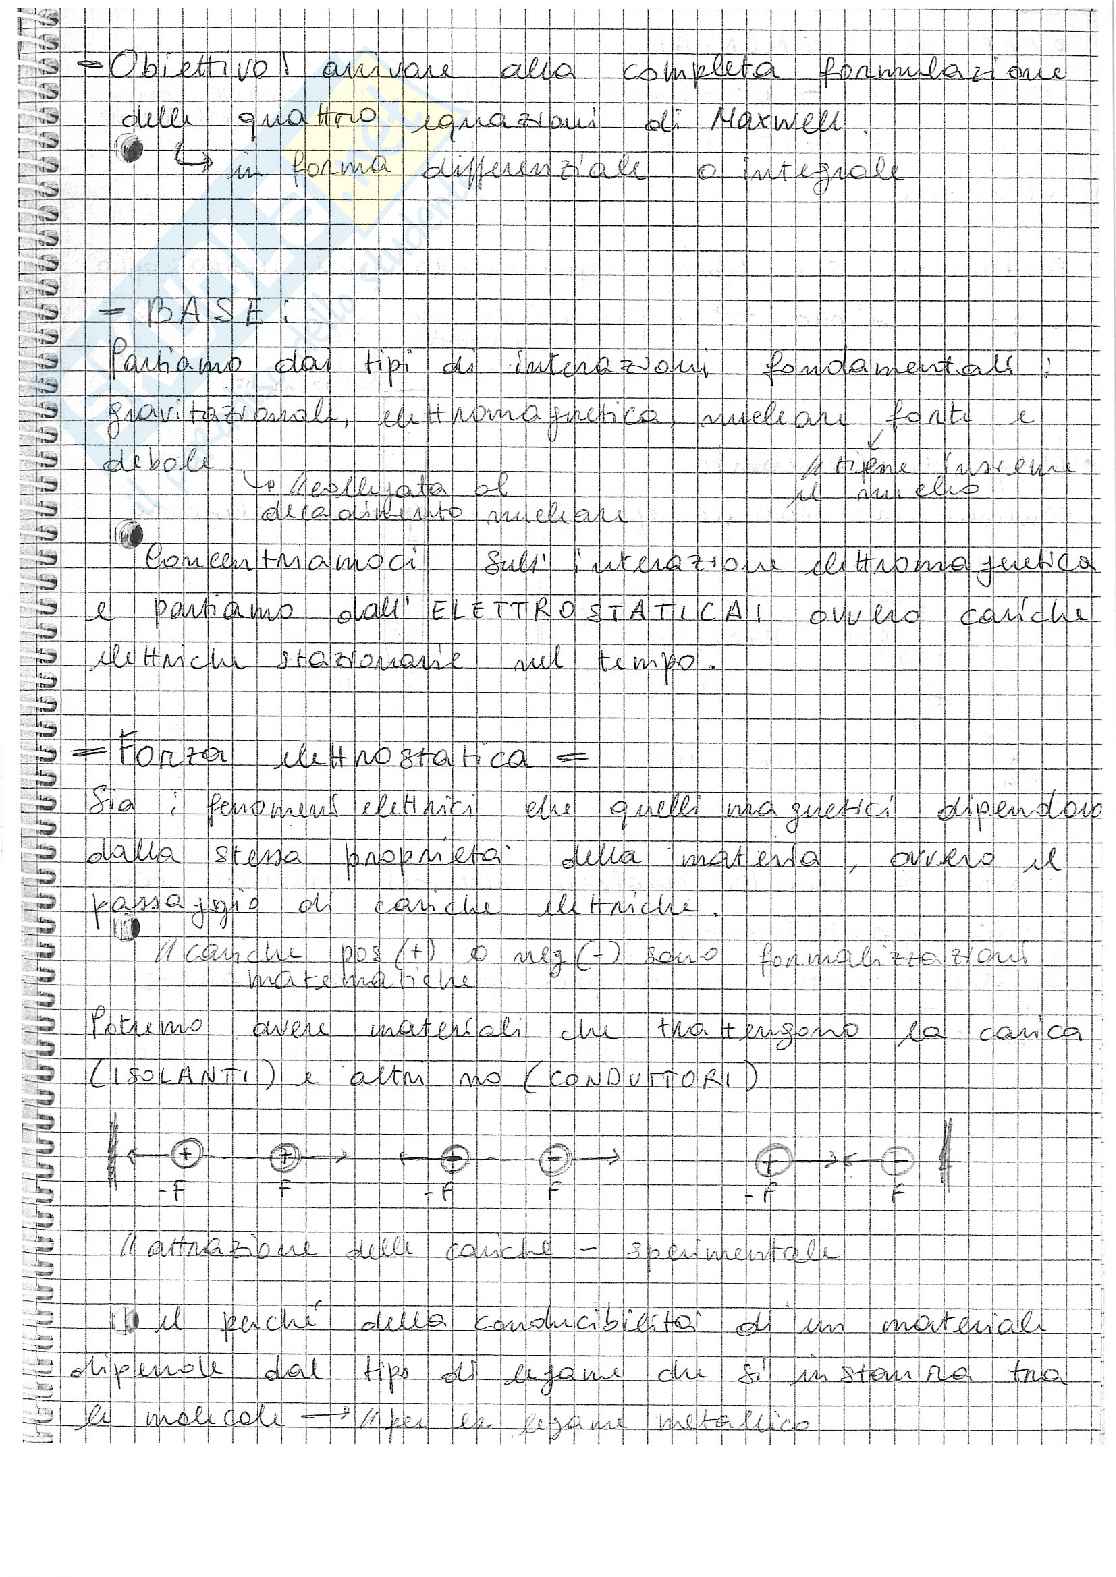 = Obiettivo: arrivare alla completa formulazione
delle quattro equazioni di Maxwell.
↳ in forma differenziale o integrale
= BASE:
Partiamo dai tipi di interazioni fondamentali:
gravitazionale, elettromagnetica, nucleare forte e
debole
// tiene insieme
il nucleo
↳ // collegata al
decadimento nucleare
Concentriamoci sull'interazione elettromagnetica
e partiamo dall'ELETTROSTATICA, ovvero cariche
elettriche stazionarie nel tempo.
= Forza elettrostatica =
Sia i fenomeni elettrici che quelli magnetici dipendono
dalla stessa proprietà della materia, ovvero il
passaggio di cariche elettriche.
// cariche pos (+) o neg (-) sono formalizzazioni
matematiche
Potremo avere materiali che trattengono la carica
(ISOLANTI) e altri no (CONDUTTORI)
+ + - - + -
-F F -F F -F F
// attrazione delle cariche - sperimentale
il perché della conducibilità di un materiale
dipende dal tipo di legame che si instaura tra
le molecole → // per es. legame metallico